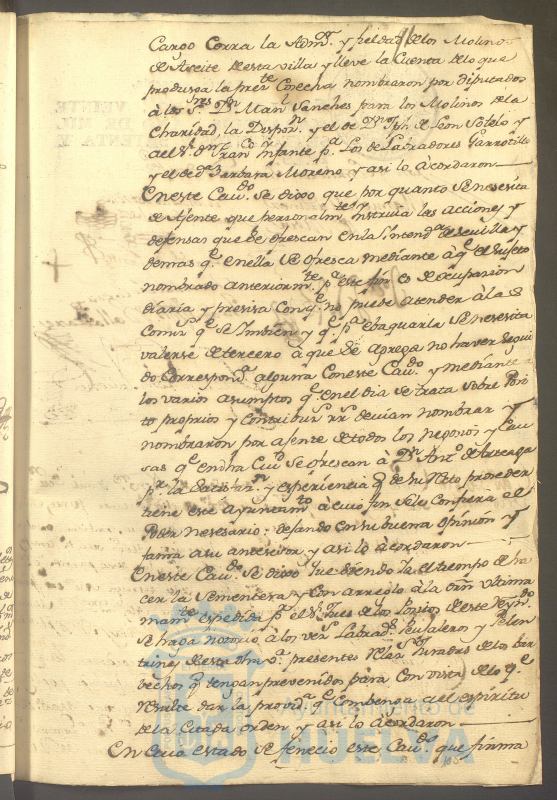 Cargo Corra la Adm.on y fieldad de los Molinos
de Aseite de esta villa y lleve la Cuenta de lo que
produsga la pres.te Cosecha nombraron por diputados
à los S.res D.n Man.l Sanches para los Molinos de la
Charidad, la Despon.n y el de D.n Jph de Leon Sotelo y
Fran.co Infante p.a los de Labradores Garrotillo
y el de d.a Barbara Moreno y asi lo acordaron
En este Cav.do Se dixo que por quanto Se nesesita
de Ajente que personalm.te instruia las acciones y
defensas que se ofrescan en la Yntend.a de sevilla y
demas q.e en ella se ofresca mediante à q.e el sujeto
nombrado anteriorm.te p.a este fin es de ocupasion
diaria y presisa Con q.e no puede atender à las
Comis.s q.e se imbien y q.e p.a ebaquarla Se nesesita
valerse de tercero à que se agrega no haver seguido
do Correspond.a alguna Con este Cav.do y mediante a
los varios asumptos q.e en el dia se trata sobre Posi
to proprios y Contribus.s r.s devian nombrar y
nombraron por ajente de todos los negosios y Cau
sas q.e en dha Ciu.d se ofrescan à D.n Ant.o de Arteaga
p.r la Satisfas.n y experiencia q.e de su Neto proseder
tiene este Ayuntam.to à cuio fin se les Confiera el
Poder nesesario: dejando Con su buena opinion y
fama a su antesesor y asi lo acordaron
En este Cav.do Se dixo que siendo el tiempo de ha
cer la Sementera y Con arreglo à la orn ultima
mam.te espedida p.r el S.r Jues de los Positos de este Reyn.do
se haga notorio à los ves.s Labrad.s Peujaleros y Pelen
trines de esta dha v.a presenten Relas.n Jurada de los bar
bechos q.e tengan prevenidos para Con vista de lo q.e
Resulte dar la provid.a q.e Combenga al espiritu
de la Citada orden y asi lo acordaron
En Cuio estado se fenecio este Cav.do que firma
Ayuntamiento de
HUELVA